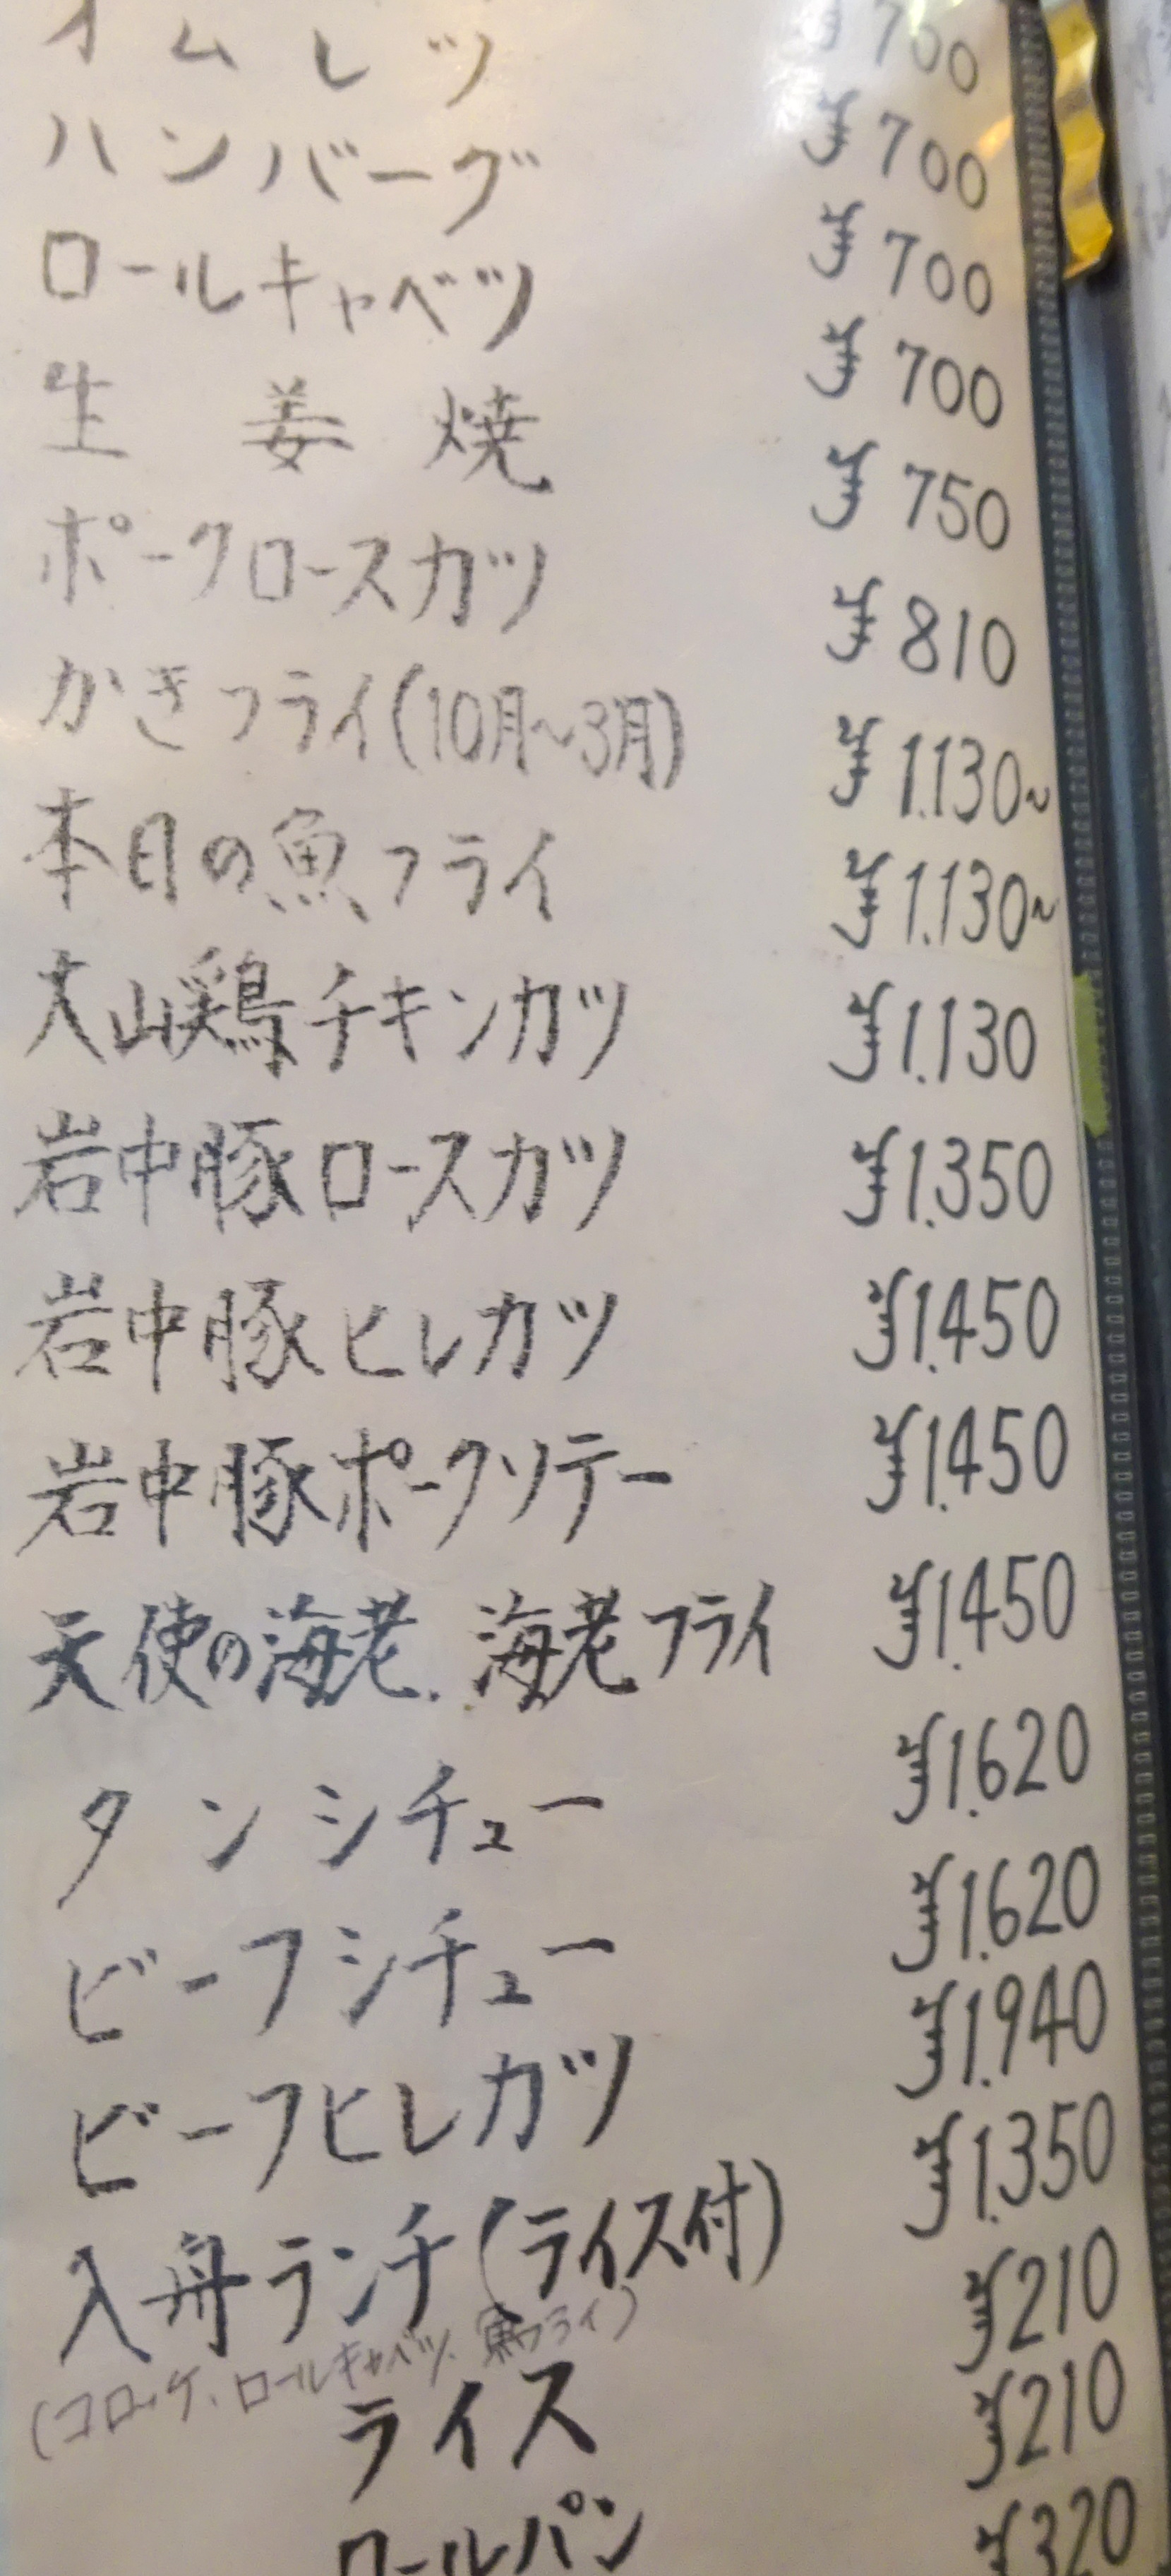 ¥700
オムレツ ¥700
ハンバーグ ¥700
ロールキャベツ ¥700
生姜焼 ¥750
ポークロースカツ ¥810
かきフライ(10月~3月) ¥1.130~
本日の魚フライ ¥1.130~
大山鶏チキンカツ ¥1.130
岩中豚ロースカツ ¥1.350
岩中豚ヒレカツ ¥1.450
岩中豚ポークソテー ¥1.450
天使の海老.海老フライ ¥1.450
タンシチュー ¥1.620
ビーフシチュー ¥1.620
ビーフヒレカツ ¥1.940
入舟ランチ(ライス付) ¥1.350
(コロッケ、ロールキャベツ、魚フライ)
ライス ¥210
ロールパン ¥210
¥320